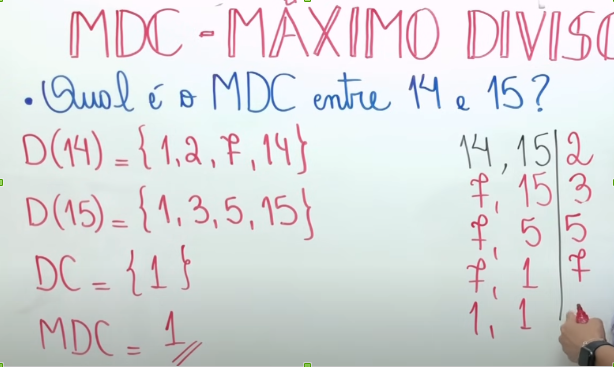 MDC - MÁXIMO DIVISO
• Qual é o MDC entre 14 e 15?
D(14) = {1, 2, 7, 14}
D(15) = {1, 3, 5, 15}
DC = {1}
MDC = 1
14, 15 | 2
7, 15 | 3
7, 5 | 5
7, 1 | 7
1, 1